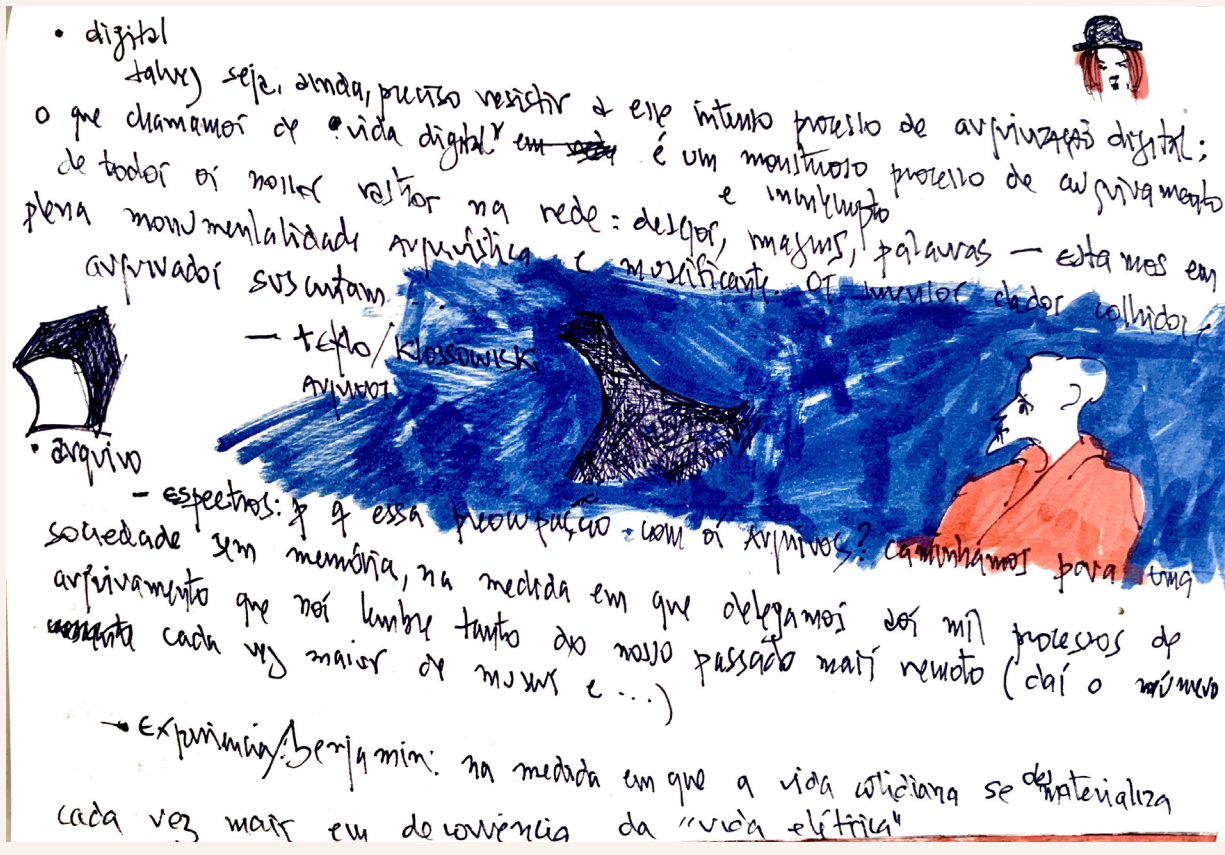 • digital
talvez seja, ainda, preciso resistir a esse intenso processo de arquivização digital;
o que chamamos de "vida digital" é um monstruoso processo de arquivamento
e ininterrupto
de todos os nossos rastros na rede: desejos, imagens, palavras — estamos em
plena monumentalidade arquivística e museificante. Os imensos dados colhidos,
arquivados suscitam
— texto/Klossowisk
Arquivos
• arquivo
- espectros: p q essa preocupação com os arquivos? caminhamos para uma
sociedade sem memória, na medida em que delegamos aos mil processos de
arquivamento que nos lembre tanto do nosso passado mais remoto (daí o número
cada vez maior de museus e ...)
Experiência/Benjamin: na medida em que a vida cotidiana se desmaterializa
cada vez mais em decorrência da "vida elétrica"